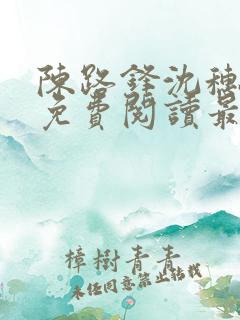 陳路鋒沈穗
免費閱讀最
樟樹青青
未经同意禁止转载